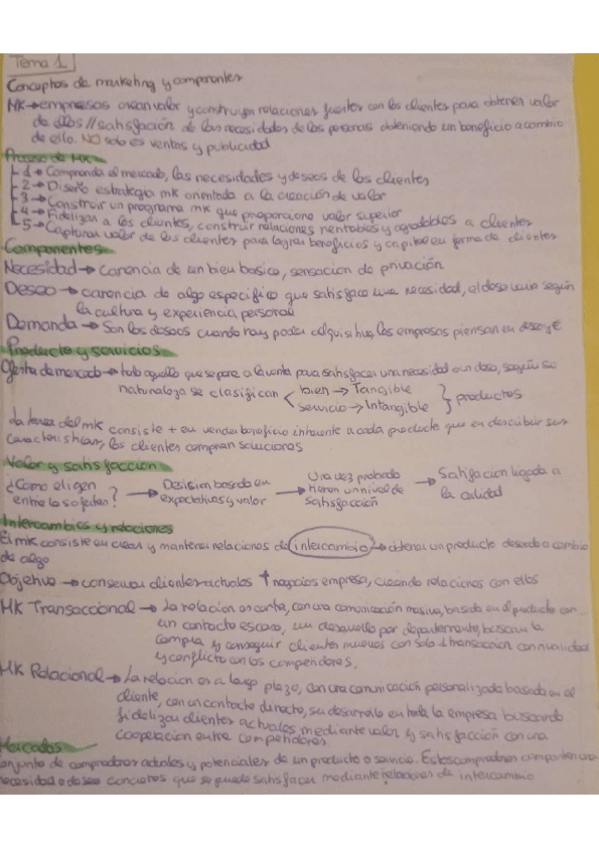 Tema 1
Conceptos de marketing y componentes
MK → empresas crean valor y construyen relaciones fuertes con los clientes para obtener valor
de ellos // satisfacción de las necesidades de las personas obteniendo un beneficio a cambio
de ello. NO solo es ventas y publicidad
Proceso de MK
1 → Comprenda el mercado, las necesidades y deseos de los clientes
2 → Diseño estrategia mk orientada a la creación de valor
3 → Construir un programa mk que proporcione valor superior
4 → Fidelizar a los clientes, construir relaciones rentables y agradables a clientes
5 → Capturar valor de los clientes para lograr beneficios y capital en forma de clientes
Componentes
Necesidad → carencia de un bien basico, sensacion de privación
Deseo → carencia de algo especifico que satisface una necesidad, el deseo varia según
la cultura y experiencia personal
Demanda → Son los deseos cuando hay poder adquisitivo, las empresas piensan en
Producto y servicios
Oferta de mercado → todo aquello que se pone a la venta para satisfacer una necesidad o un deseo, según su
naturaleza se clasifican bien → Tangible
servicio → Intangible } productos
La tarea del mk consiste + en vender beneficio inherente a cada producto que en describir sus
características, los clientes compran soluciones
Valor y satisfaccion
¿Como eligen entre las ofertas? → Decision basada en expectativas y valor → Una vez probado tienen un nivel de satisfacción → Satisfacion ligada a la calidad
Intercambios y relaciones
El mk consiste en crear y mantener relaciones de intercambio → obtener un producto deseado a cambio
de algo
Objetivo → conservar clientes actuales ↑ negocios empresa, creando relaciones con ellos
MK Transaccional → La relacion es corta, con una comunicación masiva, basada en el producto con
un contacto escaso, un desarrollo por departamento, buscan la
compra y conseguir clientes nuevos con solo 1 transaccion con rivalidad
y conflicto con los competidores.
MK Relacional → La relacion es a largo plazo, con una comunicacion personalizada basada en el
cliente, con un contacto directo, su desarrollo en toda la empresa buscando
fidelizar clientes actuales mediante valor y satisfacción con una
cooperacion entre competidores
Mercados
conjunto de compradores actuales y potenciales de un producto o servicio. Estos compradores comparten una
necesidad o deseo concretos que se puede satisfacer mediante relaciones de intercambio